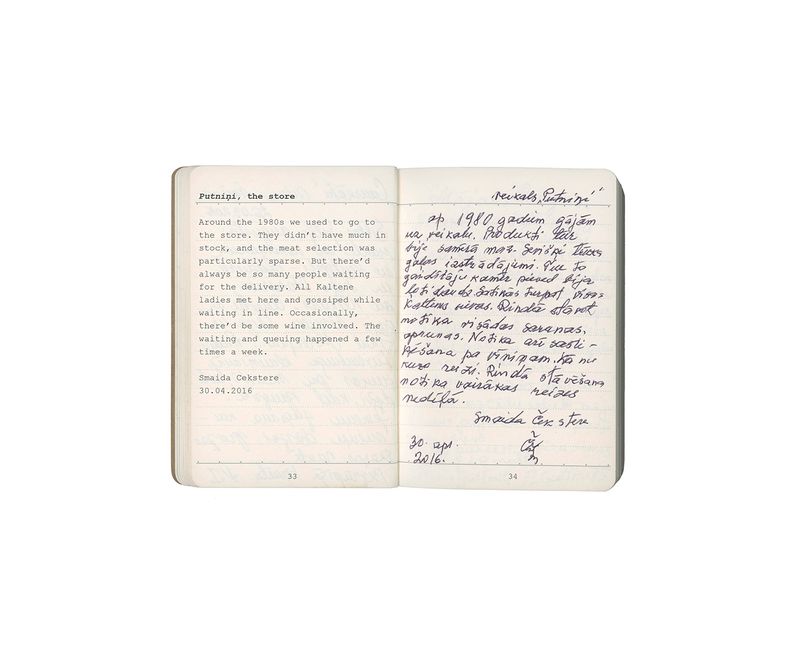 Putniņi, the store
Around the 1980s we used to go to
the store. They didn't have much in
stock, and the meat selection was
particularly sparse. But there'd
always be so many people waiting
for the delivery. All Kaltene
ladies met here and gossiped while
waiting in line. Occasionally,
there'd be some wine involved. The
waiting and queuing happened a few
times a week.
Smaida Cekstere
30.04.2016
33
veikals „Putniņi"
ap 1980 gadiem gājām
uz veikalu. Produkti tur
bija samērā maz. Sevišķi
gaļas izstrādājumi. to
gaidītāju kamēr pieved bija
ļoti daudz. Satikās turpat visas
Kaltenes sievas. Rindā stāvot
notika visādas sarunas,
aprunas. Notika arī
pa vīniņam. Ka nu
kuro reizi. Rindā stāvēšana
notika vairākas reizes
nedēļā.
Smaida Čekstere
30. apr.
2016.
34